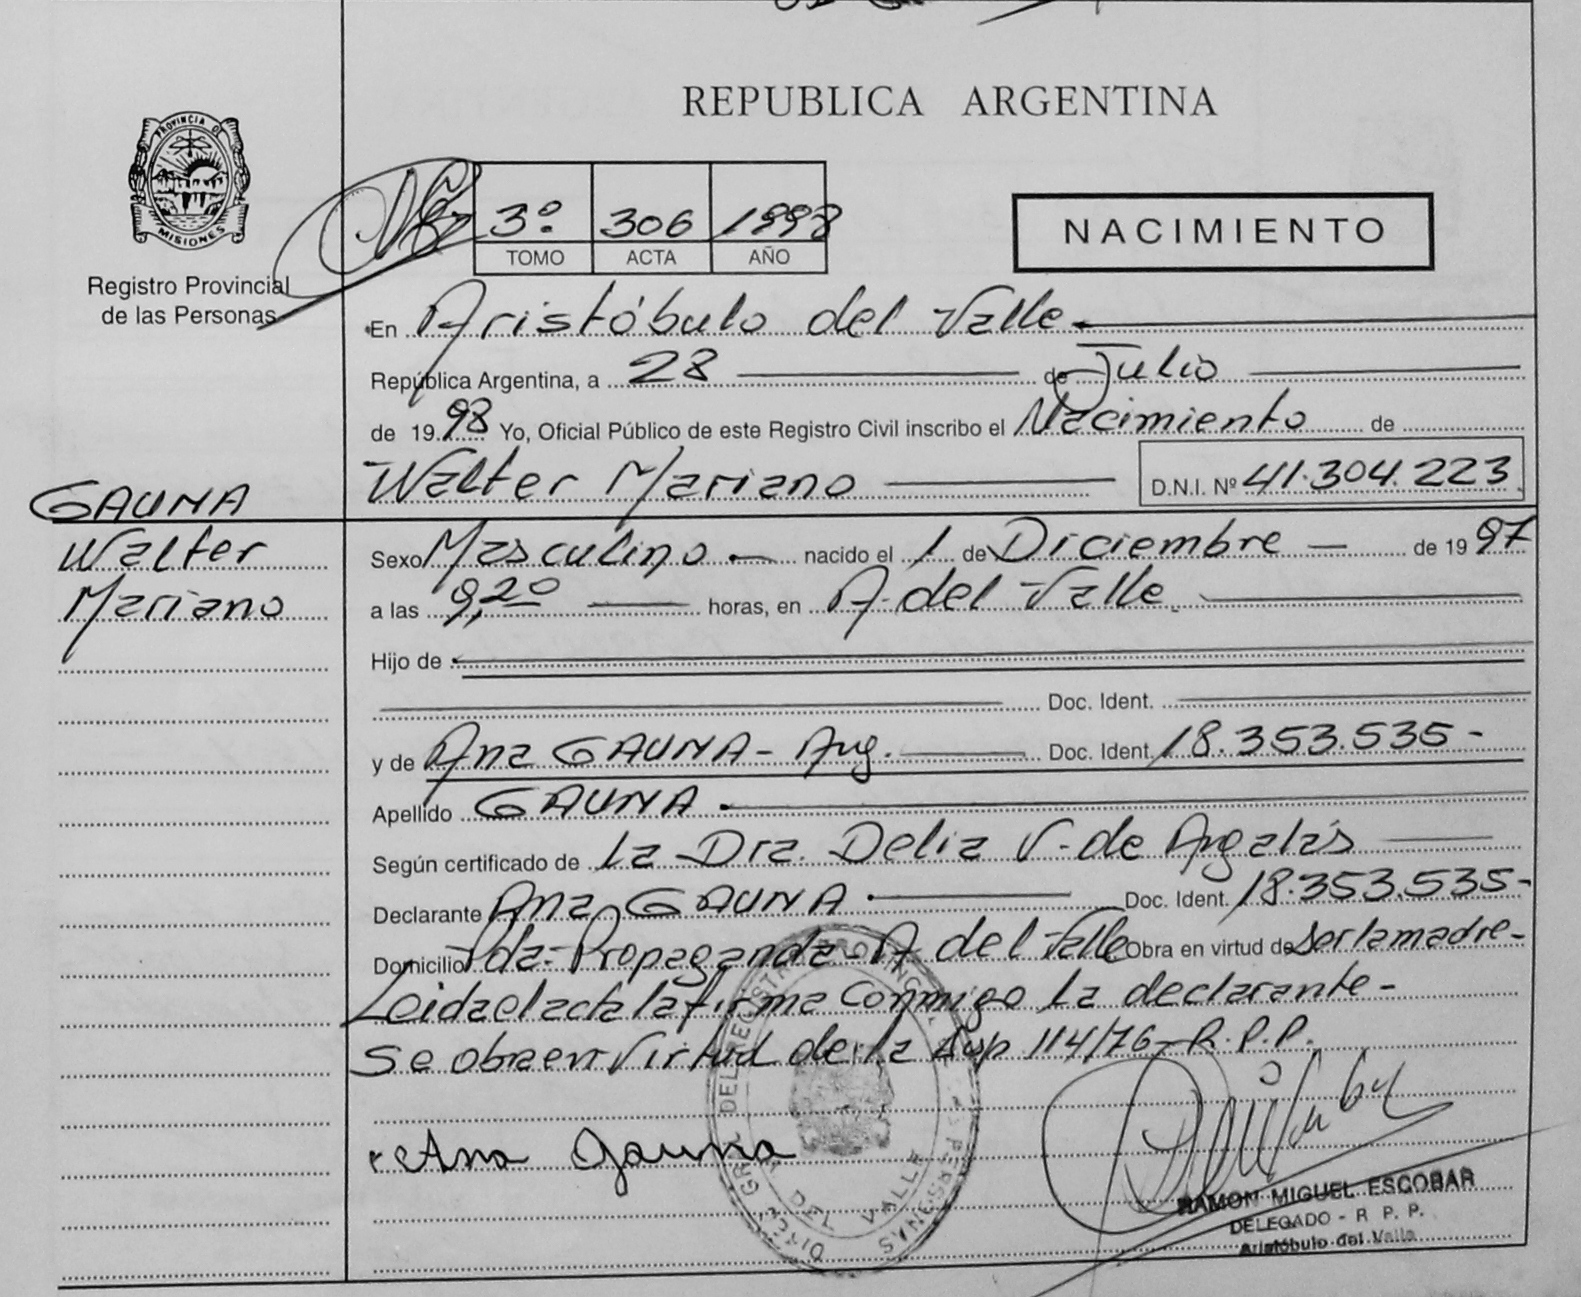 REPUBLICA ARGENTINA
PROVINCIA DE
MISIONES
Registro Provincial
de las Personas
3º 306 1998
TOMO ACTA AÑO
NACIMIENTO
En Aristóbulo del Valle
República Argentina, a 28 de Julio
de 1998 Yo, Oficial Público de este Registro Civil inscribo el Nacimiento de
Walter Mariano D.N.I. Nº 41.304.223
GAUNA
Walter
Mariano
Sexo Masculino nacido el 1 de Diciembre de 1997
a las 9,20 horas, en A. del Valle
Hijo de
Doc. Ident.
y de Ana GAUNA - Arg. Doc. Ident. 18.353.535-
Apellido GAUNA
Según certificado de La Dra. Delia V. de Argalás
Declarante Ana GAUNA Doc. Ident. 18.353.535-
Domicilio Pda. Propaganda - A del Valle Obra en virtud de ser la madre-
Leida el acta la firma conmigo la declarante-
Se obra en virtud de la 114/76 - R.P.P.
Ana Gauna
DEL VALLE
RAMON MIGUEL ESCOBAR
DELEGADO - R. P. P.
Aristóbulo del Valle